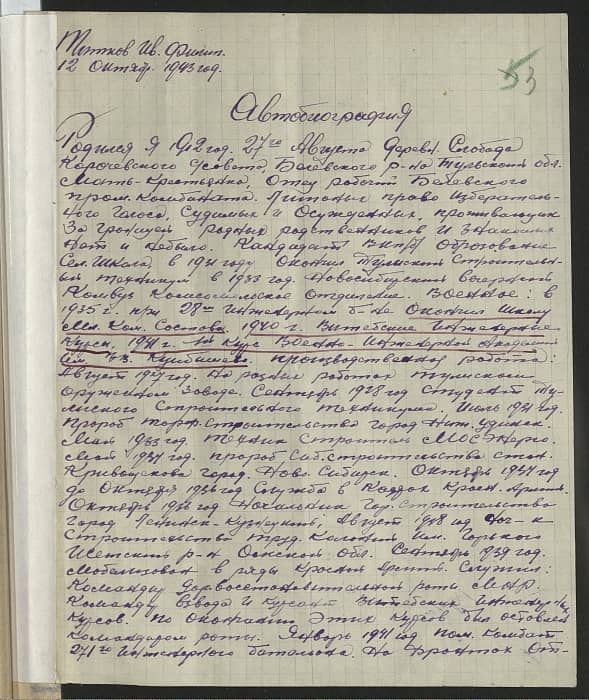 Титков Ив. Филип.
12 Октябр. 1943 год.
53
Автобиография
Родился я 1912 год. 27го Августа Деревн. Слобода
Карачевского с/совета, Белевского р-на Тульской обл.
Мать-Крестьянка, Отец рабочий Белевского
пром. Комбината. Лишоных право Избератель-
ного Голоса, Судимых и Осужденных, проживающих
За границей родных родственников И знакомых
Нет и небыло. Кандидат ВКП/б Образование
Сел. Школа, в 1931 году Окончил Тульский Строительн-
ый техникум в 1933 год. Новосибирский вечерний
Комвуз Комсомольское Отделение. Военное: в
1935 г. при 28м Инженерном б-не Окончил Школу
Мл. Ком. Состава, 1940 г. Витебские Инженерные
Курсы, 1941 г. 1й Курс Военно-Инженерной Академии
Им. В.В. Куйбышева. Производственная работа:
Август 1927 год. На разных работах Тульском
Оружейном Заводе. Сентябрь 1928 год Студент Ту-
льского Строительного техникума. Июль 1931 год.
Прораб Строительства город
Май 1933 год. Техник Строитель
Май 1934 год. прораб Сиб. Строительства стан.
Кривощеково город. Ново-Сибирск. Октябрь 1934 год
до Октября 1936 год Служба в Рядах Красн. Армии.
Октябрь 1936 год Начальник Гор. строительства
Город Ленинск-Кузнецкий, Август 1938 год Нач-к
Строительства труд. Колонии Им. Горького
р-н Омской Обл. Сентябрь 1939 год.
Мобилизован в ряды Красной Армии. Служил:
Командир роты
Командир взвода И Курсант Витебских Инженерных
Курсов. По окончании Этих Курсов был оставлен
Командиром роты. Январь 1941 год пом. Комбат.
271го Инженерного батальона. На фронтах От-